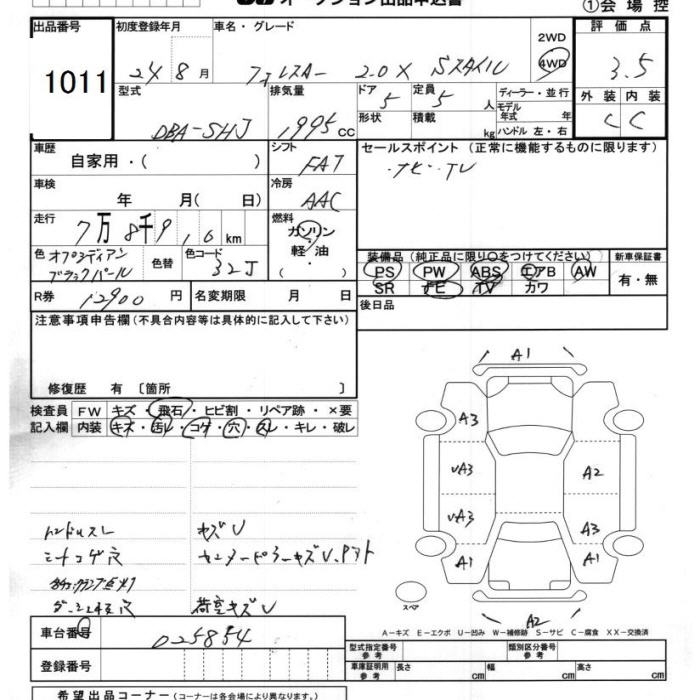 オークション出品申込書
①会場控
出品番号 初度登録年月 車名・グレード 評価点
1011 24 8月 フォレスター 2.0X Sスタイル 2WD 4WD 3.5
型式 排気量 ドア 定員 ディーラー・並行 外装 内装
DBA-SHJ 1995cc 5 5人 モデル年式 年 C C
形状 積載 kg ハンドル 左・右
車歴 シフト セールスポイント (正常に機能するものに限ります)
自家用・( ) FAT ・ナビ・TV
車検 冷房
年 月( 日) AAC
走行 燃料
7万8千9,6km ガソリン・軽油・
色 色替 色コード 装備品(純正品に限り○をつけてください) 新車保証書
オブシディアンブラックパール 32J PS PW ABS エアB AW 有・無
SR ナビ TV カワ
R券 12900円 名変期限 月 日 後日品
注意事項申告欄(不具合内容等は具体的に記入して下さい)
修復歴 有〔箇所 〕
検査員記入欄 FW キズ・飛石・ヒビ割・リペア跡・×要
内装 キズ・汚レ・コゲ・穴・スレ・キレ・破レ
A1
A3
A3
A2
A3
A3
A1
A1
A2
スペア
ハンドルスレ キズU
シートコゲ穴
荷室キズU
A-キズ E-エクボ U-凹み W-補修跡 S-サビ C-腐食 XX-交換済
車台番号 025854
型式指定番号 参考 類別区分番号 参考
登録番号 車庫証明用 参考 長さ cm 幅 cm 高さ cm
希望出品コーナー(コーナーは各会場により異なります。)